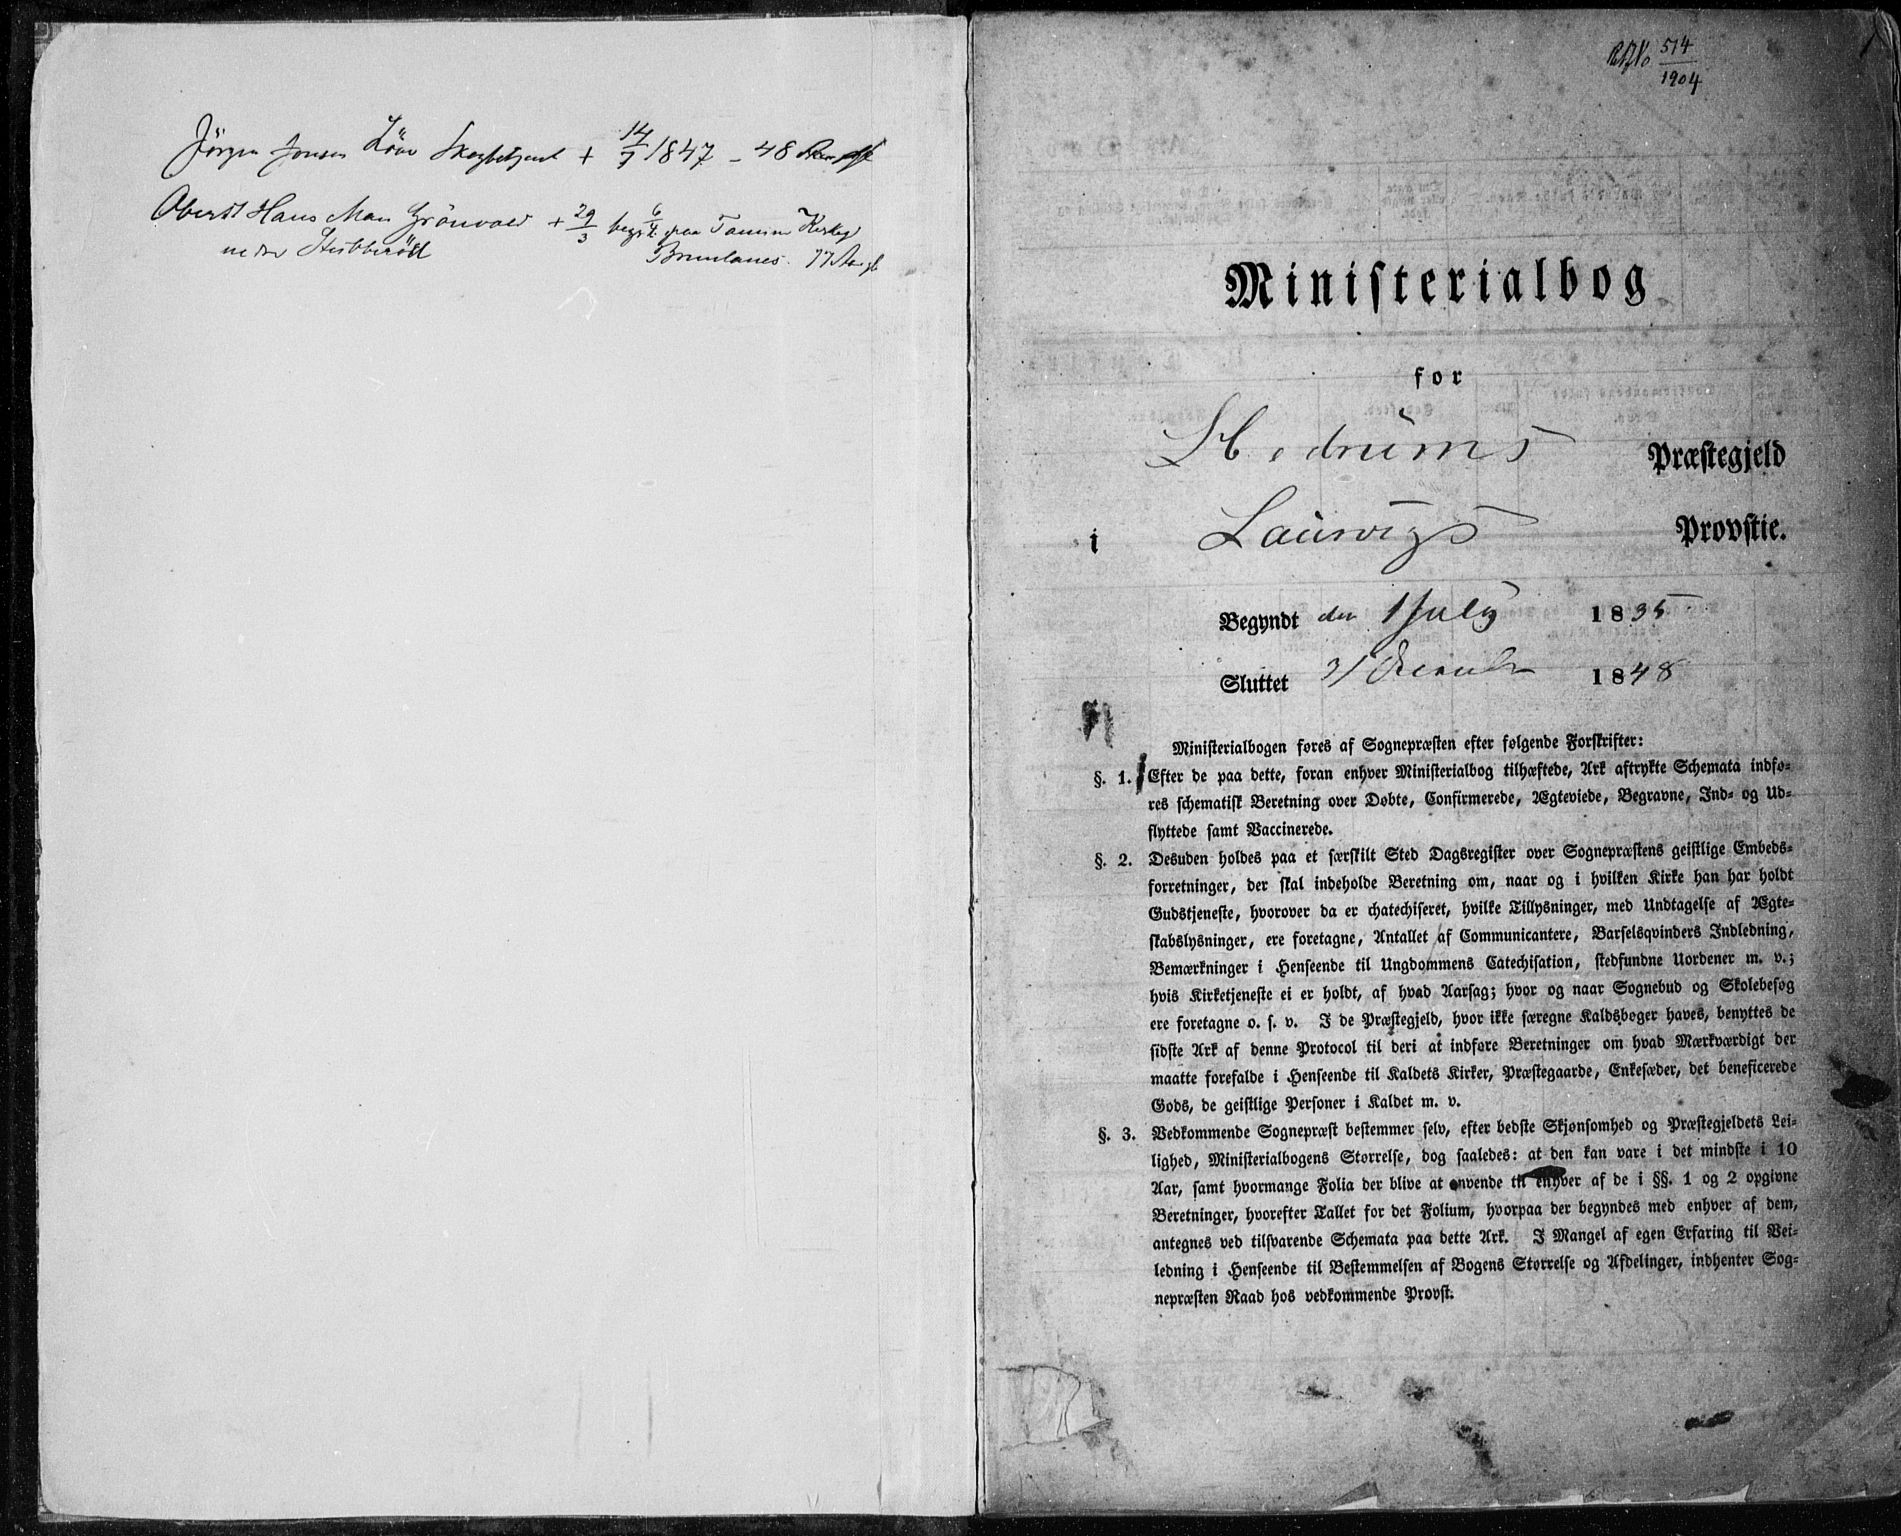 Jörgen Jonsen Löve Skogbetjent + 14/7 1847 - 48 Aar
Oberst Hans Grönvold + 29/3 begr. 6/4 paa Tanum Kirkeg
neder Stubberöd Brunlanes. 77 Aar gl
514
1904
1
Ministerialbog
for
Hedrums Præstegjeld
i Laurvigs Provstie.
Begyndt den 1 July 1835
Sluttet 31 December 1848
Ministerialbogen føres af Sognepræsten efter følgende Forskrifter:
§. 1. Efter de paa dette, foran enhver Ministerialbog tilhæftede, Ark aftrykte Schemata indfø-
res schematisk Beretning over Døbte, Confirmerede, Ægteviede, Begravne, Ind- og Ud-
flyttede samt Vaccinerede.
§. 2. Desuden holdes paa et særskilt Sted Dagsregister over Sognepræstens geistlige Embeds-
forretninger, der skal indeholde Beretning om, naar og i hvilken Kirke han har holdt
Gudstjeneste, hvorover da er chatechiseret, hvilke Tillysninger, med Undtagelse af Ægte-
skabslysninger, ere foretagne, Antallet af Communicantere, Barselsqvinders Indledning,
Bemærkninger i Henseende til Ungdommens Catechisation, stedfundne Uordener m. v.;
hvis Kirketjeneste ei er holdt, af hvad Aarsag; hvor og naar Sognebud og Skolebesøg
ere foretagne o. s. v. I de Præstegjeld, hvor ikke særegne Kaldsbøger haves, benyttes de
sidste Ark af denne Protocol til deri at indføre Beretninger om hvad Mærkværdigt der
maatte forefalde i Henseende til Kaldets Kirker, Præstegaarde, Enkesæder, det beneficerede
Gods, de geistlige Personer i Kaldet m. v.
§. 3. Vedkommende Sognepræst bestemmer selv, efter bedste Skjønsomhed og Præstegjeldets Lei-
lighed, Ministerialbogens Størrelse, dog saaledes: at den kan vare i det mindste i 10
Aar, samt hvormange Folia der blive at anvende til enhver af de i §§. 1 og 2 opgivne
Beretninger, hvorefter Tallet for det Folium, hvorpaa der begyndes med enhver af dem,
antegnes ved tilsvarende Schemata paa dette Ark. I Mangel af egen Erfaring til Vei-
ledning i Henseende til Bestemmelsen af Bogens Størrelse og Afdelinger, indhenter Sog-
nepræsten Raad hos vedkommende Provst.